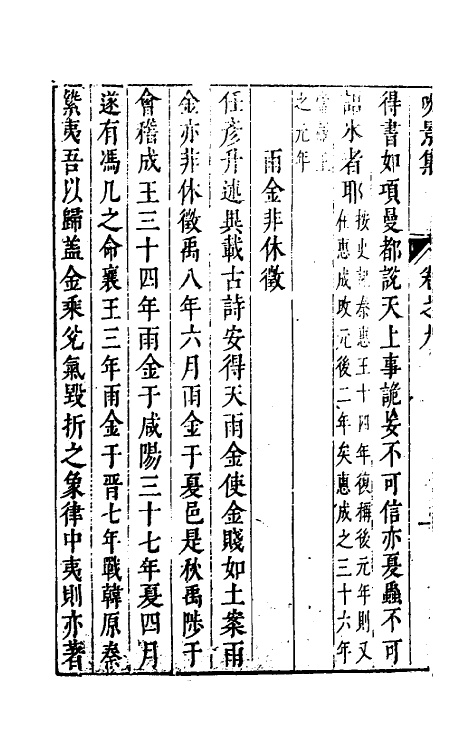 景集　卷之九
得書如項曼都說天上事詭妄不可信亦夏蟲不可
語氷者耶按史記秦惠王十四年復稱後元年則又
在惠成改元後二年矣惠成之三十六年
當惠王
之元年
雨金非休徵
任彦升述異載古詩安得天雨金使金賤如土案雨
金亦非休徵禹八年六月雨金于夏邑是秋禹陟于
會稽成王三十四年雨金于咸陽三十七年夏四月
遂有馮几之命襄王三年雨金于晋七年戰韓原秦
縶夷吾以歸蓋金乘兊氣毀折之象律中夷則亦著